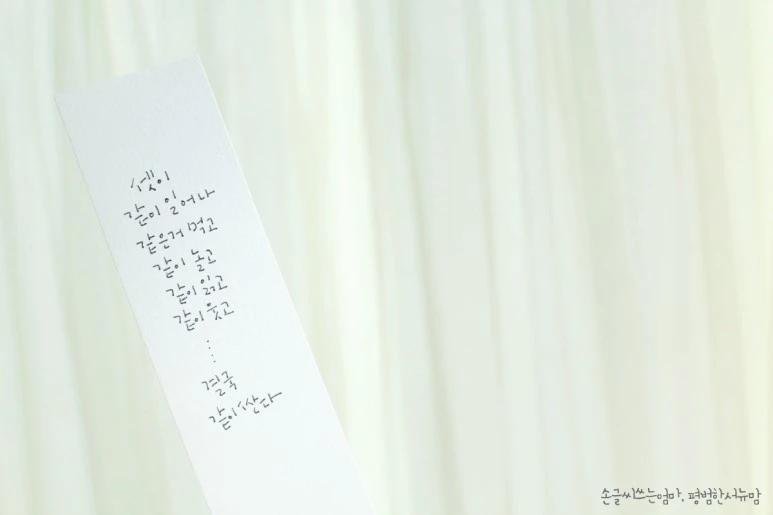 셋이
같이 일어나
같은거 먹고
같이 놀고
같이 읽고
같이 웃고
.....
결국
같이 산다
손글씨쓰는엄마, 평범한서뉴맘